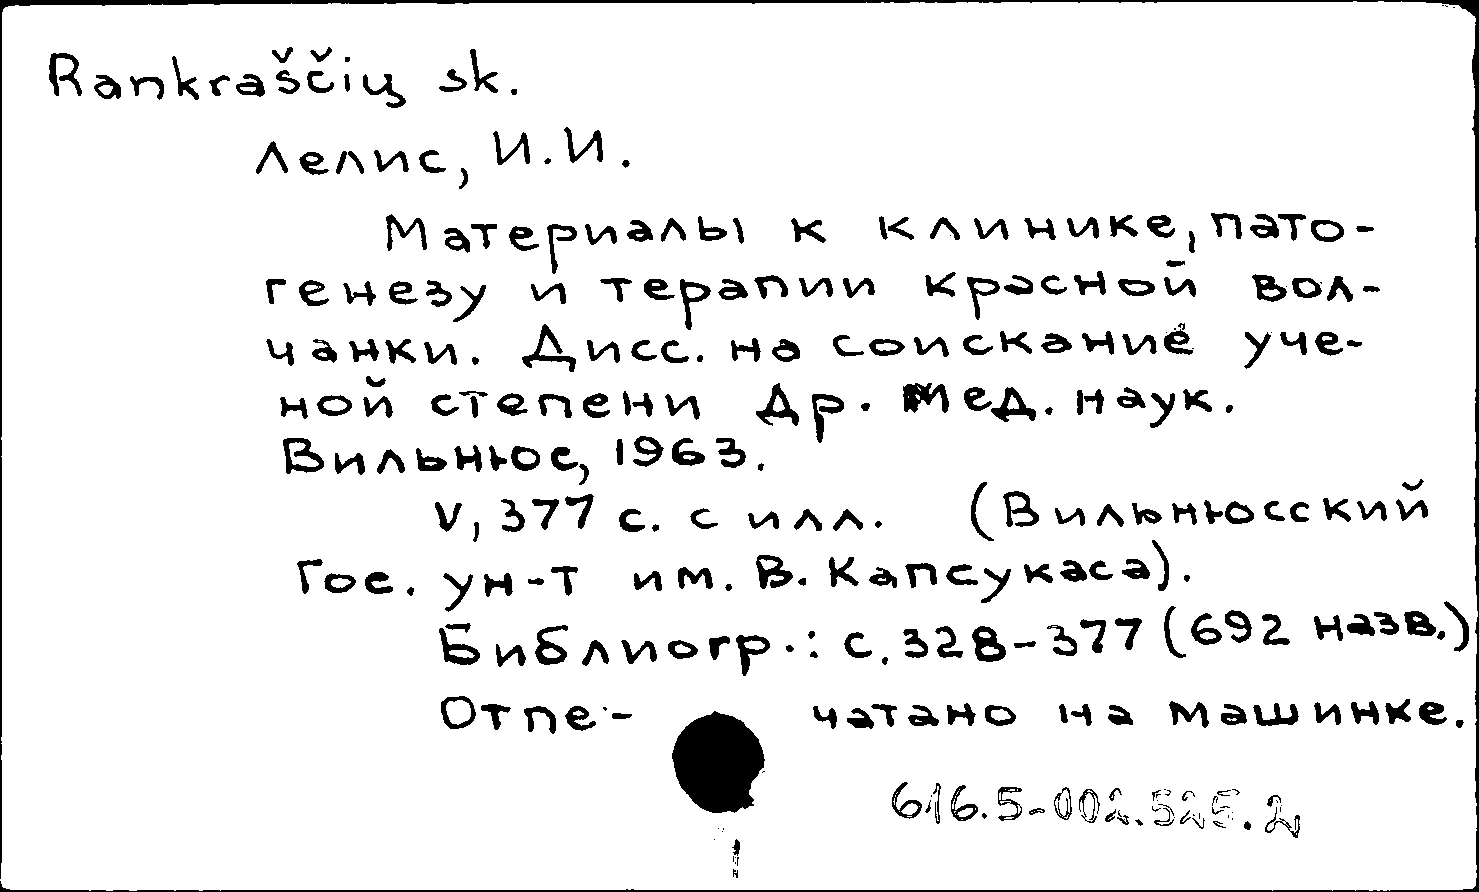 Rankraščių sk.
Лелис, И.И.
Материалы к клинике, пато-
генезу и терапии красной вол-
чанки. Дисс. на соискание уче-
ной степени Др. мед. наук.
Вильнюс, 1963.
V, 377 с. с илл. (Вильнюсский
Гос. ун-т им. В. Капсукаса).
Библиогр.: с. 328-377 (692 назв.)
Отпе- чатано на машинке.
616.5-002.525.2